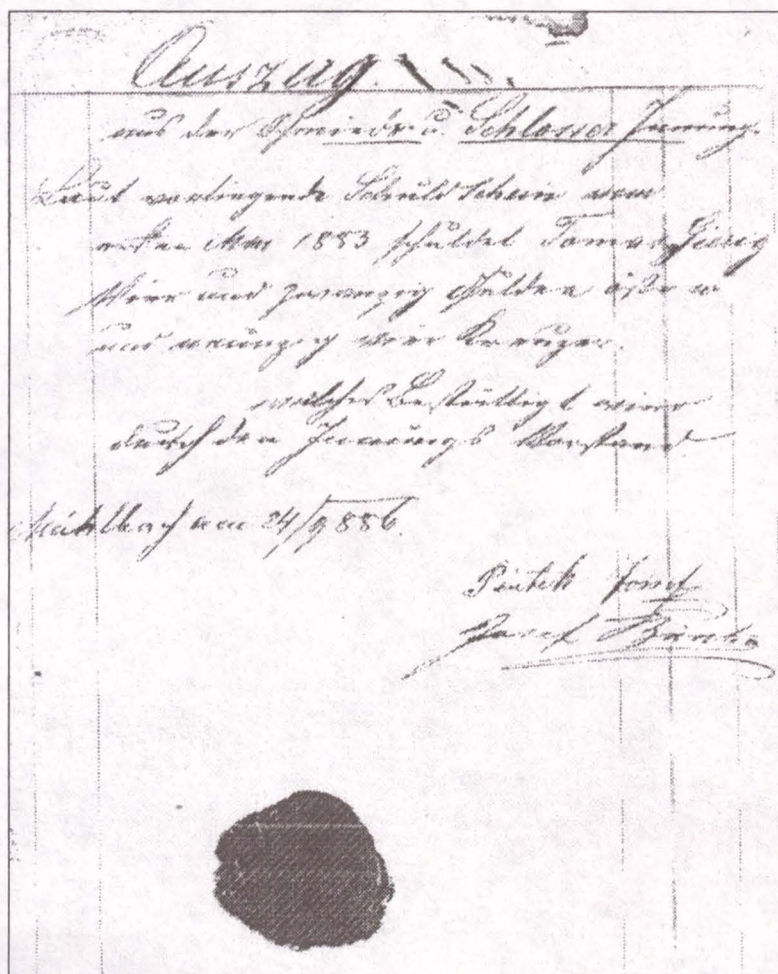 Auszug
aus der Schmiede u. Schlosser Innung.
Laut vorliegende Schuld Schein vom
ersten Mai 1883 schuldet Tomas
Vier und zwanzig Gulden
und neunzig vier Kreuzer.
welches Bestättigt wird
durch den Innungs Vorstand
Mühlbach am 24/9 886.
Josef
Josef